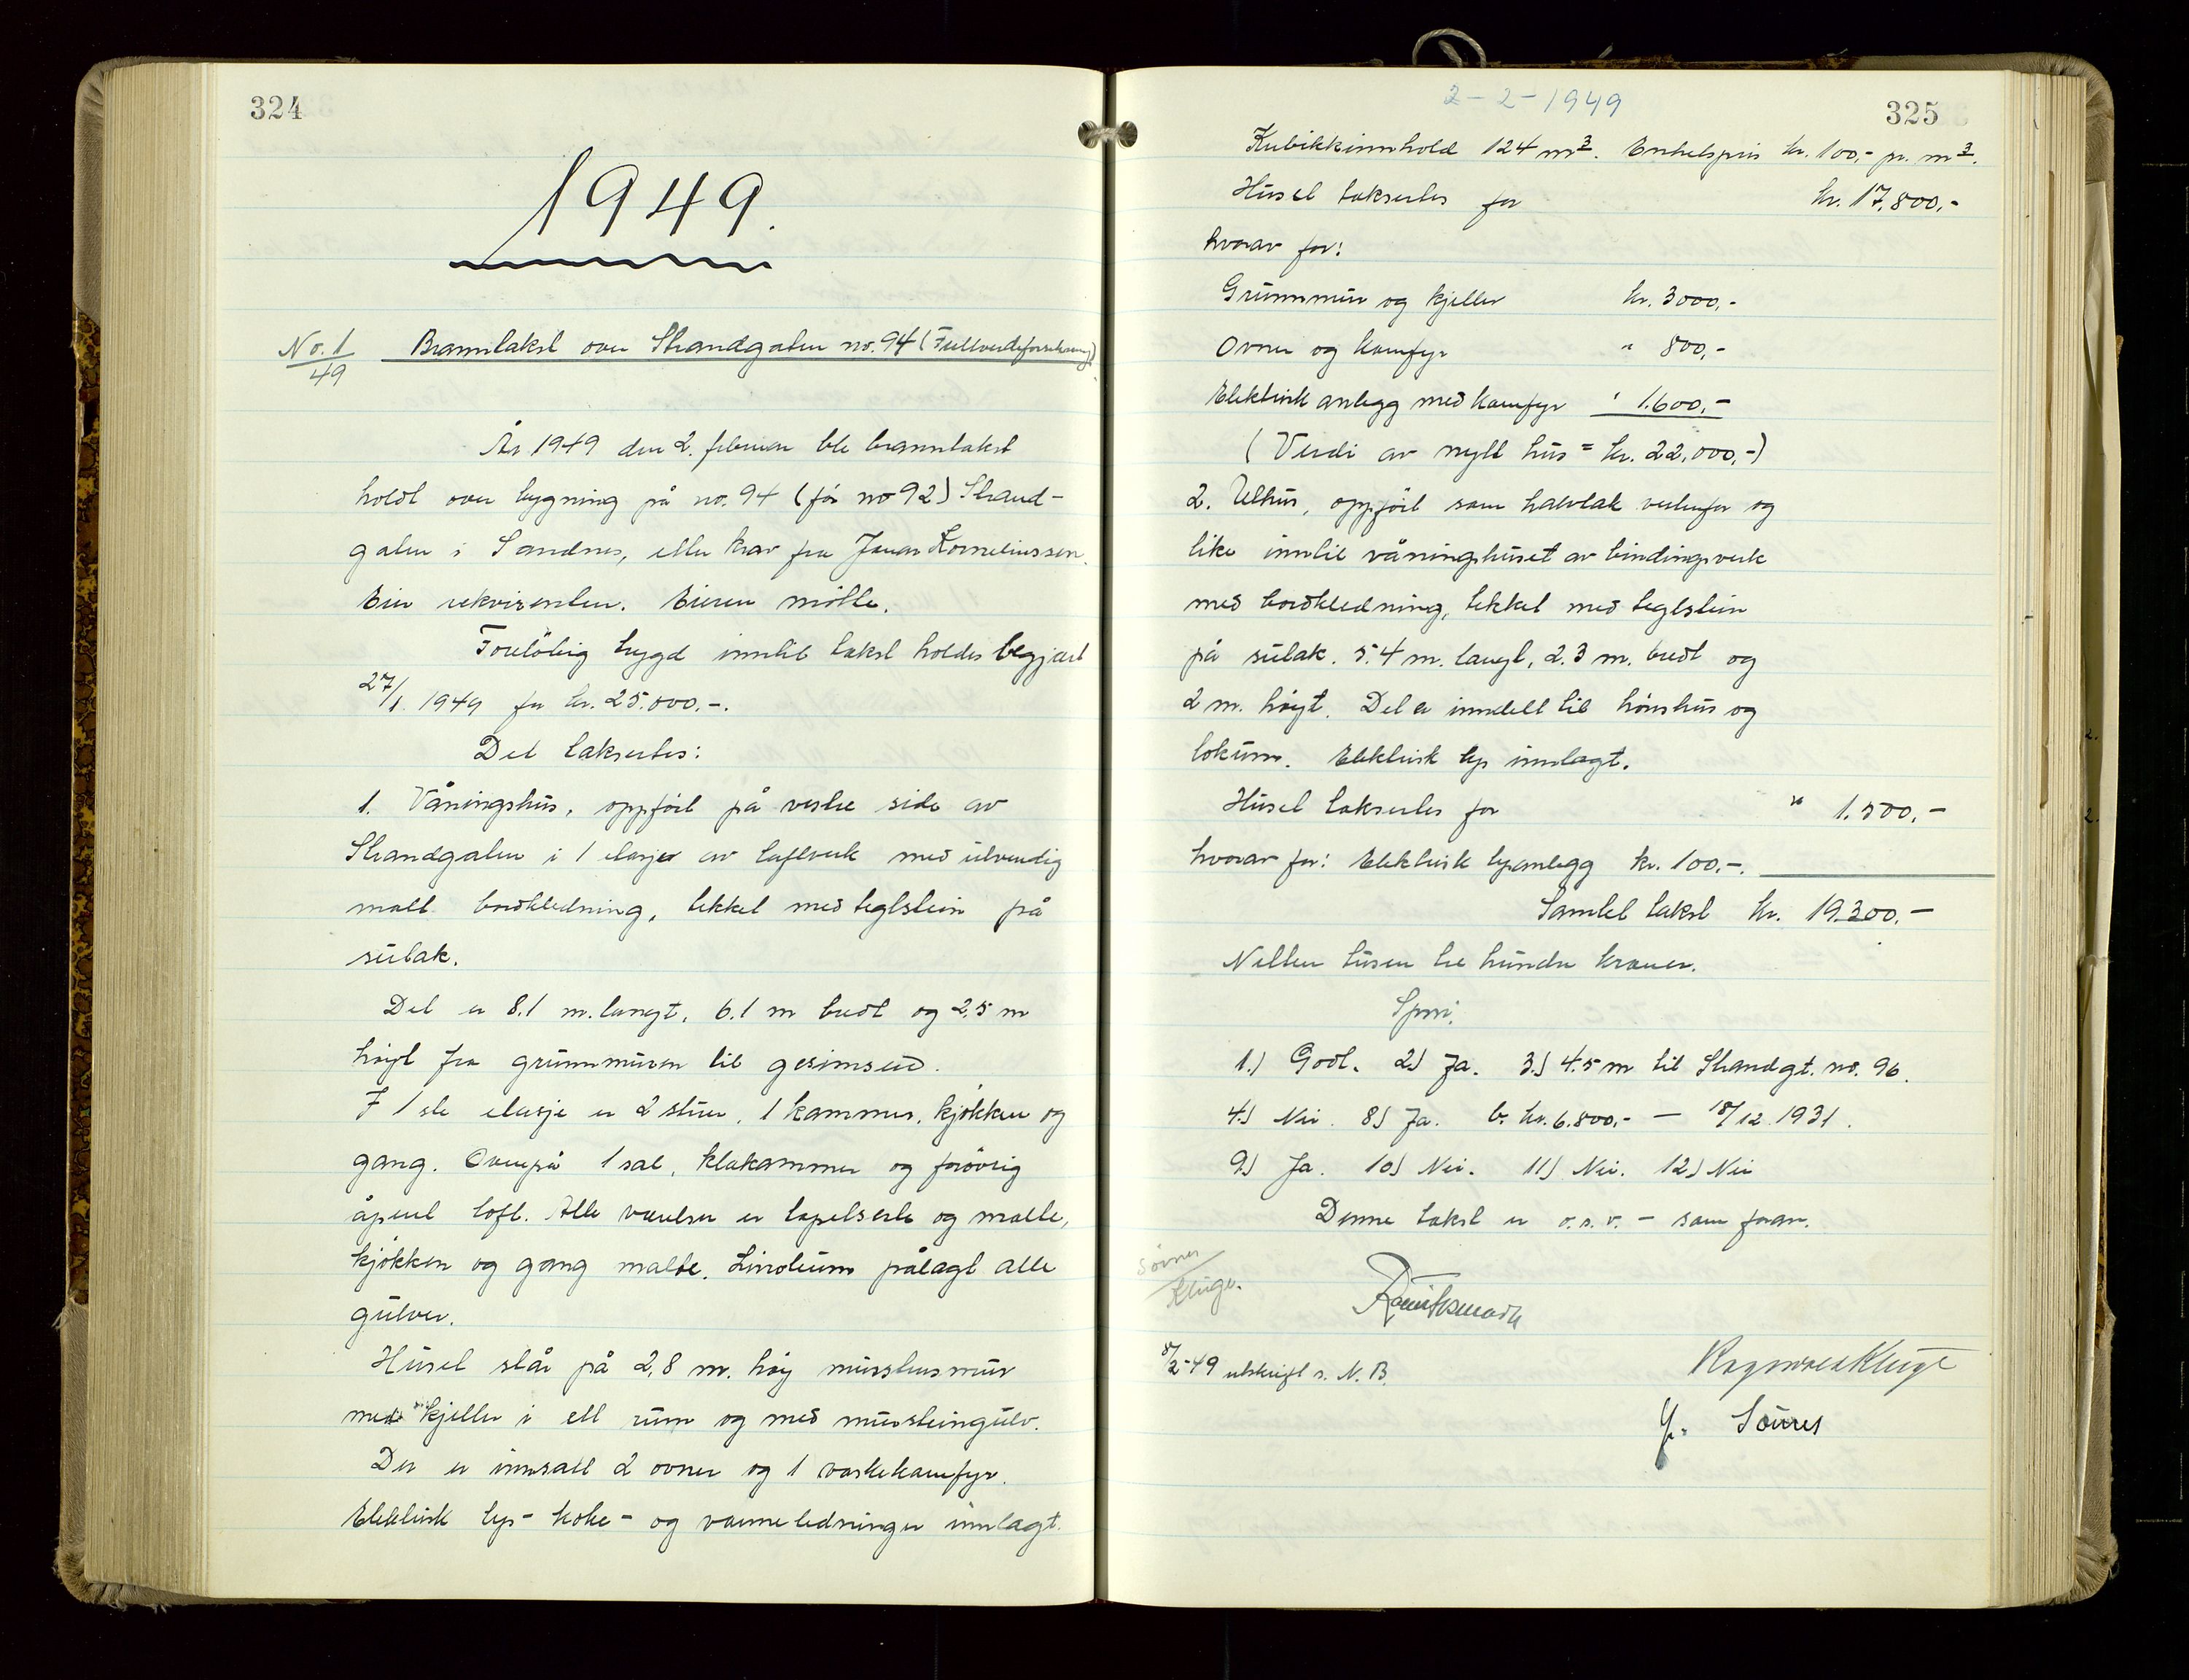 324
1949.
No. 1/49 Branntakst over Strandgaten no. 94 (Fullverdeforsikring)
År 1949 den 2. februar ble branntakst
holdt over bygning på no. 94 (før no 92) Strand-
gaten i Sandnes, etter krav fra Jonas Korneliussen.
Eier rekvirenten. Eieren møtte.
Foreløbig trygd inntil takst holdes begjært
27/1 1949 for kr. 25.000.-.
Det takseertes:
1. Våningshus, oppført på vestre side av
Strandgaten i 1 etasje av lafteverk med utvendig
malt bordkledning, tekket med teglstein på
sutak.
Det er 8.1 m. langt, 6.1 m bredt og 2,5 m
høyt fra grunnmuren til gesimsen.
I 1ste etasje er 2 stuer, 1 kammers, kjøkken og
gang. Ovenpå 1 sal, klekammer og forøvrig
åpent loft. Alle værelser er tapetserte og malte,
kjøkken og gang malte. Linoleum pålagt alle
gulver.
Huset står på 2,8 m. høy murstensmur
med kjeller i ett rum og med mursteingulv.
Der er innsatt 2 ovner og 1 vaskekomfyr.
Elektrisk lys- koke- og varmeledninger innlagt.
2-2-1949
325
Kubikkinnhold 124 m3. Enhetspris kr. 100,- pr. m3.
Huset takseertes for kr. 17.800,-
hvorav for:
Grunnmur og kjeller kr. 3000,-
Ovner og komfyr " 800,-
Elektrisk anlegg med komfyr " 1.600,-
(Verdi av nytt hus = kr. 22.000,-)
2. Uthus, oppført som halvtak vestenfor og
like inntil våninghuset av bindingsverk
med bordkledning, tekket med teglstein
på sutak. 5.4 m. langt, 2.3 m. bredt og
2 m. høyt. Det er inndelt til hønshus og
lokum. Elektrisk lys innlagt.
Huset takseertes for " 1.500,-
hvorav for: Elektrisk lysanlegg kr. 100,-.
Samlet takst kr. 19.300,-
Nitten tusen tre hundre kroner.
Spm.
1.) Godt. 2.) Ja. 3.) 4.5 m til Strandgt. no. 96.
4.) Nei. 8) Ja. b. kr. 6.800,- — 18/12 1931.
9.) Ja. 10) Nei. 11) Nei. 12) Nei
Denne takst er o.s.v. - som foran.
Sørnes
Kluge.
8/2-49 utskrift s. N. B.
Ragnvald Kluge